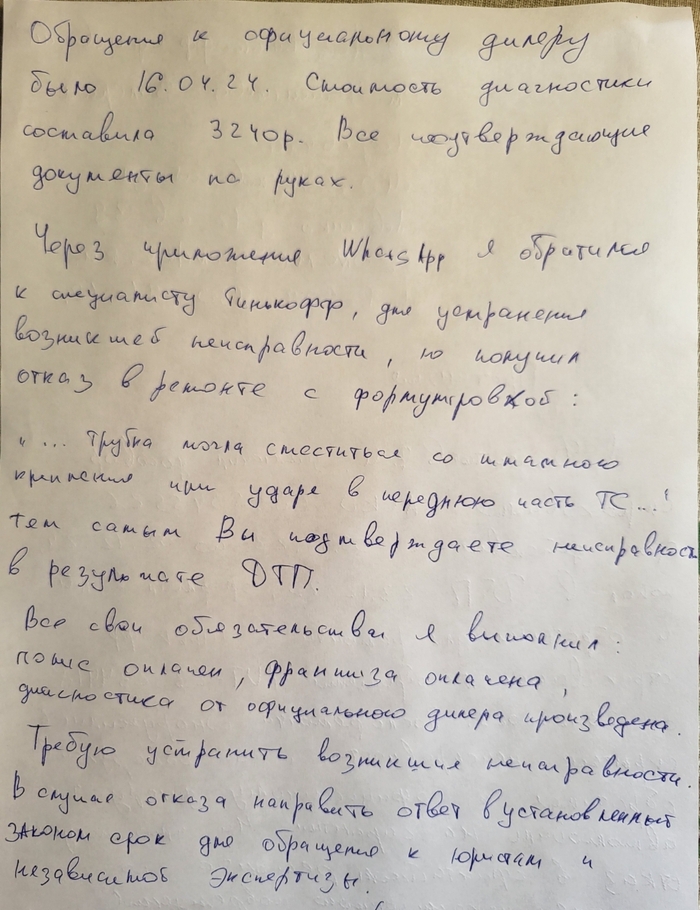 Обращение к официальному дилеру
было 16.04.24. Стоимость диагностики
составила 3240р. Все подтверждающие
документы на руках.
Через приложение WhatsApp я обратился
к специалисту Тинькофф, для устранения
возникшей неисправности, но получил
отказ в ремонте с формулировкой:
"... трубка могла сместиться со штатного
крепления при ударе в переднюю часть ТС..."
тем самым Вы подтверждаете неисправность
в результате ДТП.
Все свои обязательства я выполнил:
полис оплачен, франшиза оплачена,
диагностика от официального дилера произведена.
Требую устранить возникшие неисправности.
В случае отказа направить ответ в установленный
законом срок для обращения к юристам и
независимой экспертизы.